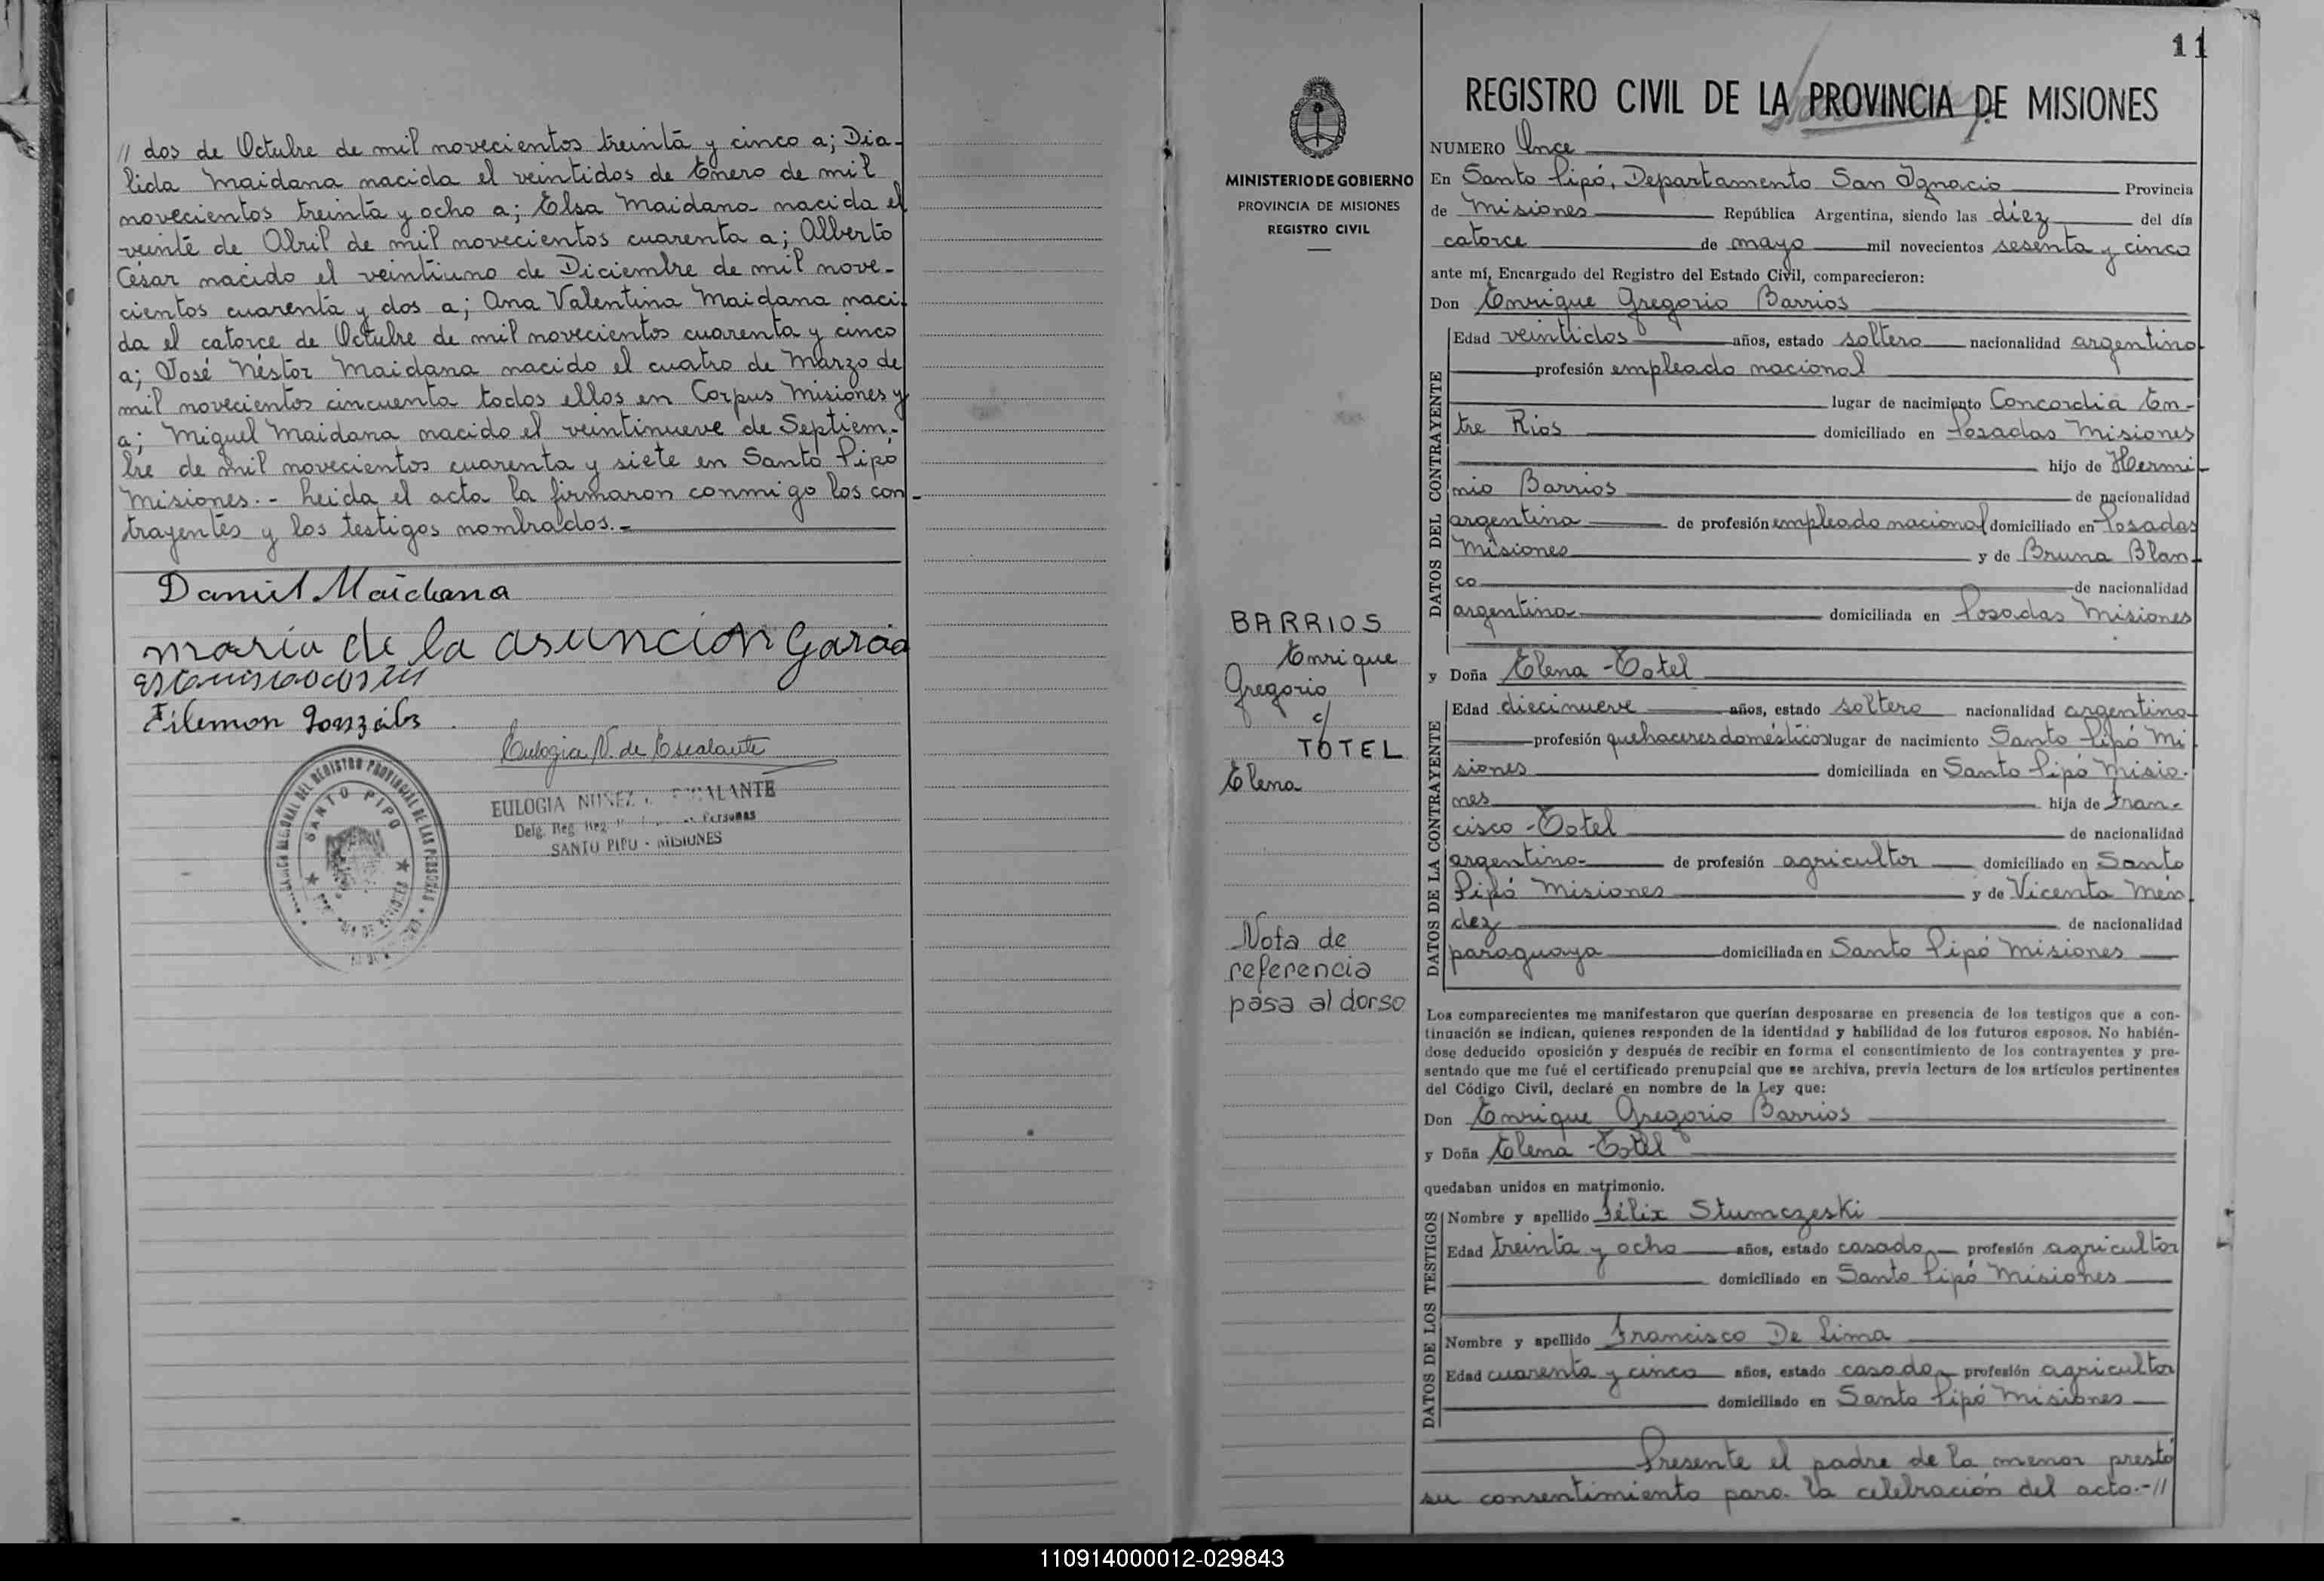 // dos de Octubre de mil novecientos treinta y cinco a; Dia-
lida Maidana nacida el veintidos de Enero de mil
novecientos treinta y ocho a; Elsa Maidana nacida el
veinte de Abril de mil novecientos cuarenta a; Alberto
César nacido el veintiuno de Diciembre de mil nove-
cientos cuarenta y dos a; Ana Valentina Maidana naci-
da el catorce de Octubre de mil novecientos cuarenta y cinco
a; José Néstor Maidana nacido el cuatro de Marzo de
mil novecientos cincuenta todos ellos en Corpus Misiones y
a; Miguel Maidana nacido el veintinueve de Septiem-
bre de mil novecientos cuarenta y siete en Santo Pipó
Misiones.- Leida el acta la firmaron conmigo los con-
trayentes y los testigos nombrados.-
Daniel Maidana
maria de la asuncion Garcia
Filemon Gonzalez
Eulogia N. de Escalante
EULOGIA NUÑEZ DE ESCALANTE
Delg. Reg. Reg. Personas
SANTO PIPO - MISIONES
SANTO PIPO
11
REGISTRO CIVIL DE LA PROVINCIA DE MISIONES
MINISTERIO DE GOBIERNO
PROVINCIA DE MISIONES
REGISTRO CIVIL
BARRIOS
Enrique
Gregorio
c/
TOTEL
Elena
Nota de
referencia
pasa al dorso
NUMERO Once
En Santo Pipó, Departamento San Ignacio Provincia
de Misiones República Argentina, siendo las diez del día
catorce de mayo mil novecientos sesenta y cinco
ante mí, Encargado del Registro del Estado Civil, comparecieron:
Don Enrique Gregorio Barrios
DATOS DEL CONTRAYENTE
Edad veintidos años, estado soltero nacionalidad argentino
profesión empleado nacional
lugar de nacimiento Concordia En-
tre Rios domiciliado en Posadas Misiones
hijo de Hermi-
nio Barrios de nacionalidad
argentina de profesión empleado nacional domiciliado en Posadas
Misiones y de Bruna Blan-
co de nacionalidad
argentina domiciliada en Posadas Misiones
y Doña Elena Totel
DATOS DE LA CONTRAYENTE
Edad diecinueve años, estado soltera nacionalidad argentina
profesión quehaceres domésticos lugar de nacimiento Santo Pipó Mi
siones domiciliada en Santo Pipó Misio-
nes hija de Fran-
cisco Totel de nacionalidad
argentino de profesión agricultor domiciliado en Santo
Pipó Misiones y de Vicenta Mén
dez de nacionalidad
paraguaya domiciliada en Santo Pipó Misiones
Los comparecientes me manifestaron que querían desposarse en presencia de los testigos que a con-
tinuación se indican, quienes responden de la identidad y habilidad de los futuros esposos. No habién-
dose deducido oposición y después de recibir en forma el consentimiento de los contrayentes y pre-
sentado que me fué el certificado prenupcial que se archiva, previa lectura de los artículos pertinentes
del Código Civil, declaré en nombre de la Ley que:
Don Enrique Gregorio Barrios
y Doña Elena Totel
quedaban unidos en matrimonio.
DATOS DE LOS TESTIGOS
Nombre y apellido Félix Stumczeski
Edad treinta y ocho años, estado casado profesión agricultor
domiciliado en Santo Pipó Misiones
Nombre y apellido Francisco De Lima
Edad cuarenta y cinco años, estado casado profesión agricultor
domiciliado en Santo Pipó Misiones
Presente el padre de la menor prestó
su consentimiento para la celebración del acto.-//
110914000012-029843